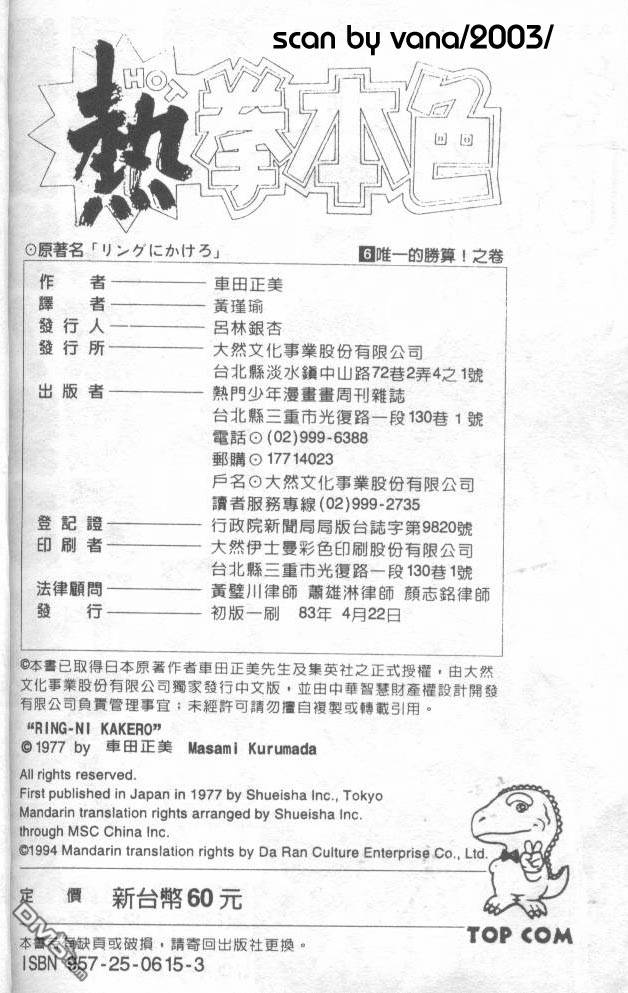 scan by vana/2003/
HOT
熱拳本色
⊙原著名「リングにかけろ」 6唯一的勝算！之卷
作者 車田正美
譯者 黃瑾瑜
發行人 呂林銀杏
發行所 大然文化事業股份有限公司
台北縣淡水鎮中山路72巷2弄4之1號
出版者 熱門少年漫畫畫周刊雜誌
台北縣三重市光復路一段130巷1號
電話⊙(02)999-6388
郵購⊙17714023
戶名⊙大然文化事業股份有限公司
讀者服務專線(02)999-2735
登記證 行政院新聞局局版台誌字第9820號
印刷者 大然伊士曼彩色印刷股份有限公司
台北縣三重市光復路一段130巷1號
法律顧問 黃璧川律師 蕭雄淋律師 顏志銘律師
發行 初版一刷 83年 4月22日
©本書已取得日本原著作者車田正美先生及集英社之正式授權，由大然
文化事業股份有限公司獨家發行中文版，並由中華智慧財產權設計開發
有限公司負責管理事宜；未經許可請勿擅自複製或轉載引用。
“RING-NI KAKERO”
©1977 by 車田正美 Masami Kurumada
All rights reserved.
First published in Japan in 1977 by Shueisha Inc., Tokyo
Mandarin translation rights arranged by Shueisha Inc.
through MSC China Inc.
©1994 Mandarin translation rights by Da Ran Culture Enterprise Co., Ltd.
定價 新台幣60元
TOP COM
本書若有缺頁或破損，請寄回出版社更換。
ISBN 957-25-0615-3